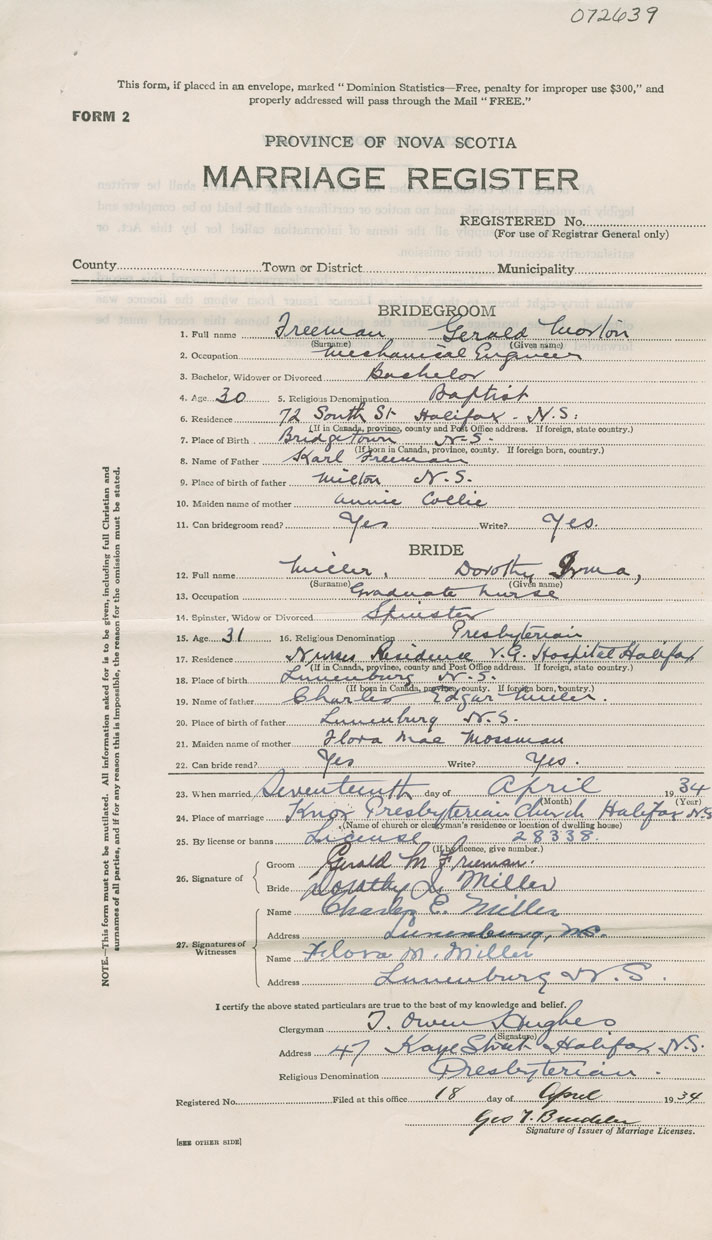 072639
This form, if placed in an envelope, marked "Dominion Statistics—Free, penalty for improper use $300," and
properly addressed will pass through the Mail "FREE."
FORM 2
PROVINCE OF NOVA SCOTIA
MARRIAGE REGISTER
REGISTERED No.
(For use of Registrar General only)
County Town or District Municipality
BRIDEGROOM
1. Full name Freeman Gerald Morton
(Surname) (Given name)
2. Occupation Mechanical Engineer
3. Bachelor, Widower or Divorced Bachelor
4. Age 30 5. Religious Denomination Baptist
6. Residence 72 South St Halifax - N.S.
(If in Canada, province, county and Post Office address. If foreign, state country.)
7. Place of Birth Bridgetown N.S.
(If born in Canada, province, county. If foreign born, country.)
8. Name of Father Karl Freeman
9. Place of birth of father Milton N.S.
10. Maiden name of mother Annie Collie
11. Can bridegroom read? Yes Write? Yes.
BRIDE
12. Full name Miller, Dorothy Irma,
(Surname) (Given name)
13. Occupation Graduate Nurse
14. Spinster, Widow or Divorced Spinster
15. Age 31 16. Religious Denomination Presbyterian
17. Residence Nurses Residence V.G. Hospital Halifax
(If in Canada, province, county and Post Office address. If foreign, state country.)
18. Place of birth Lunenburg N.S.
(If born in Canada, province, county. If foreign born, country.)
19. Name of father Charles Edgar Miller.
20. Place of birth of father Lunenburg N.S.
21. Maiden name of mother Flora Mae Mossman
22. Can bride read? Yes Write? Yes.
23. When married Seventeenth day of April 1934
(Month) (Year)
24. Place of marriage Knox Presbyterian Church Halifax N.S
(Name of church or clergyman's residence or location of dwelling house)
25. By license or banns License 28338.
(If by licence, give number.)
26. Signature of Groom Gerald M Freeman.
Bride Dorothy I. Miller
27. Signatures of Witnesses
Name Charles E. Miller
Address Lunenburg, N.S.
Name Flora M. Miller
Address Lunenburg N.S.
I certify the above stated particulars are true to the best of my knowledge and belief.
Clergyman T. Owen Hughes
(Signature)
Address 47 Kaye Street Halifax N.S.
Religious Denomination Presbyterian.
Registered No. Filed at this office 18 day of April 1934
Geo
Signature of Issuer of Marriage Licenses.
[SEE OTHER SIDE]
NOTE.—This form must not be mutilated. All information asked for is to be given, including full Christian and
surnames of all parties, and if for any reason this is impossible, the reason for the omission must be stated.